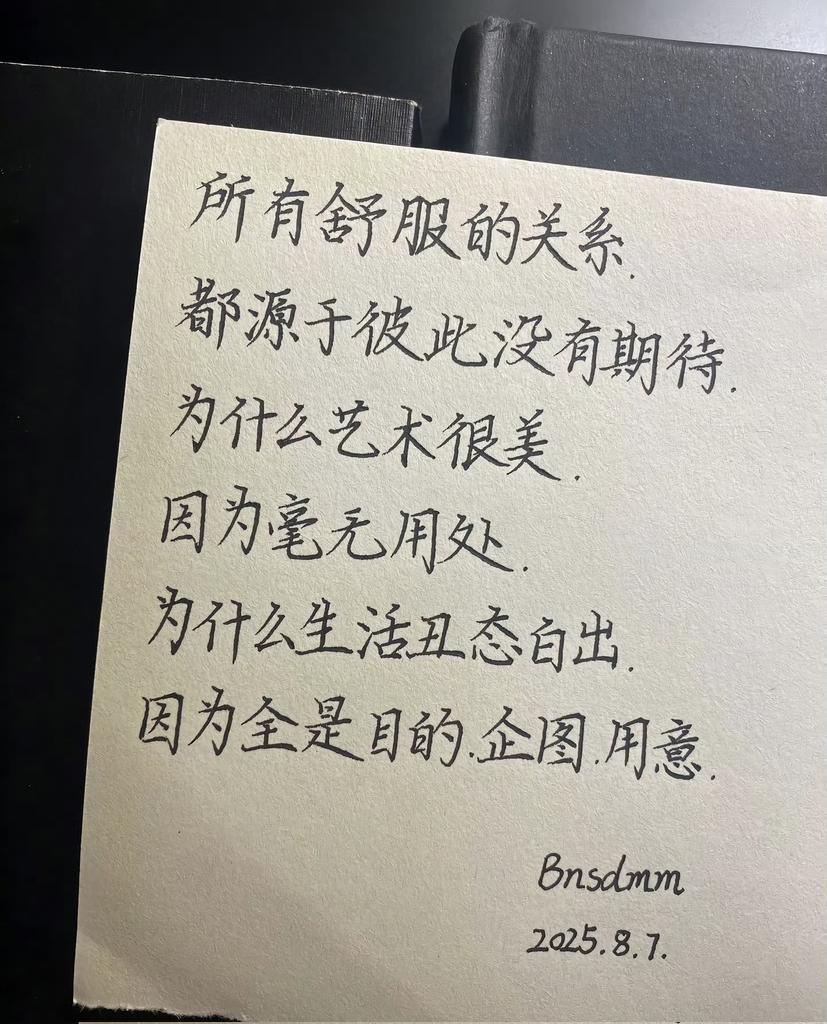 所有舒服的关系.
都源于彼此没有期待.
为什么艺术很美.
因为毫无用处.
为什么生活丑态白出.
因为全是目的.企图.用意.
Bnsdmm
2025.8.7.